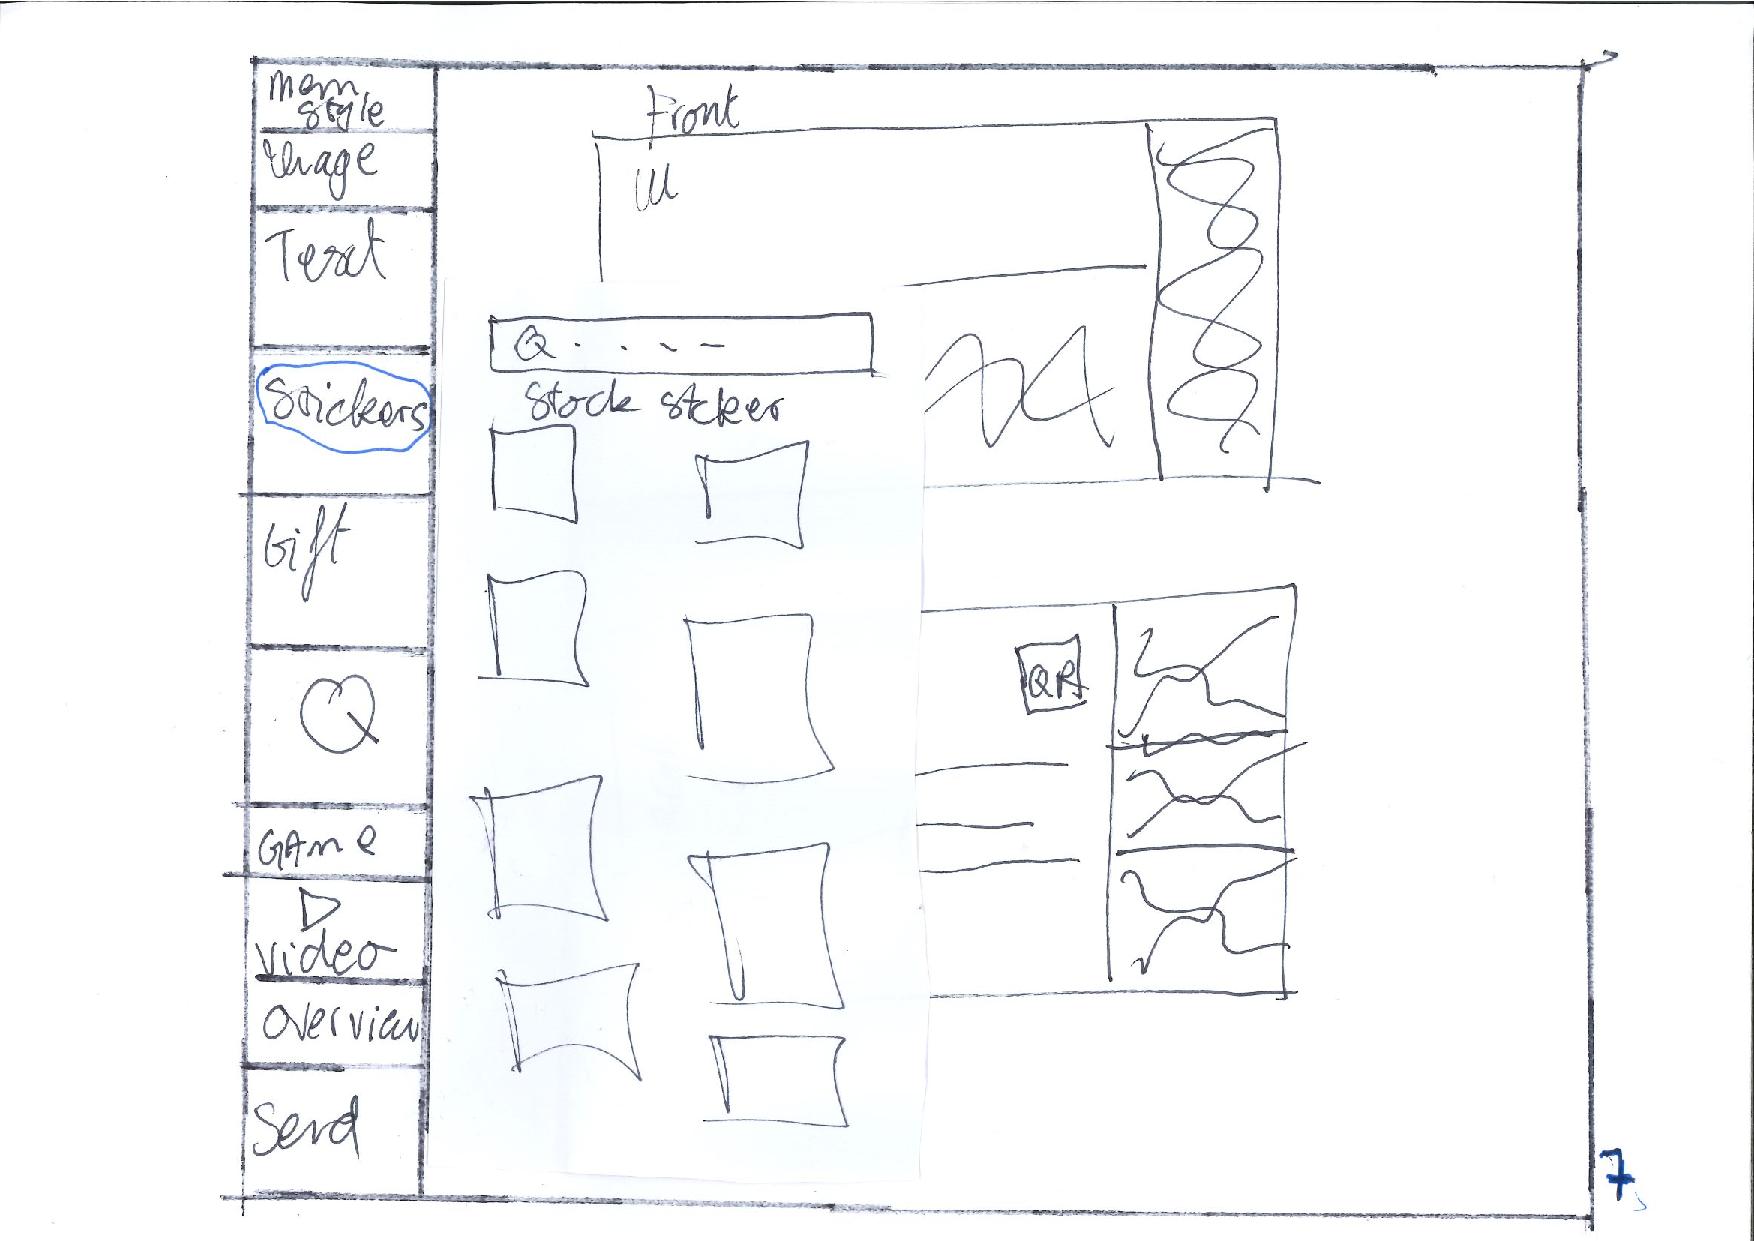 mem
style
image
Text
Stickers
Gift
Q
GAME
video
overview
Send
Front
Q
Stock stcker
QR
7